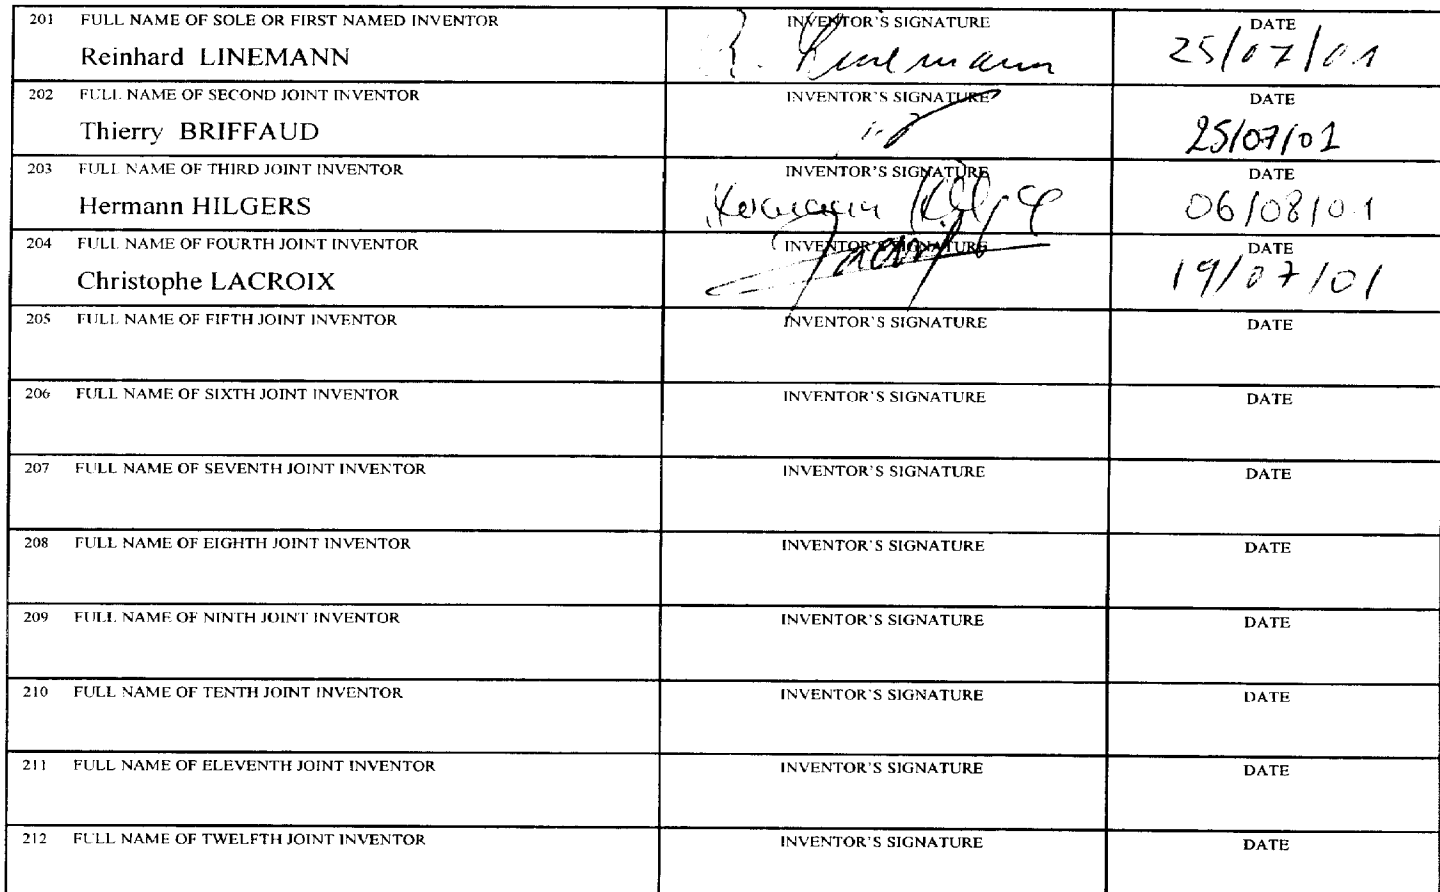 201 FULL NAME OF SOLE OR FIRST NAMED INVENTOR INVENTOR'S SIGNATURE DATE
Reinhard LINEMANN R. Linemann 25/07/01
202 FULL NAME OF SECOND JOINT INVENTOR INVENTOR'S SIGNATURE DATE
Thierry BRIFFAUD 25/07/01
203 FULL NAME OF THIRD JOINT INVENTOR INVENTOR'S SIGNATURE DATE
Hermann HILGERS Hermann Hilgers 06/08/01
204 FULL NAME OF FOURTH JOINT INVENTOR INVENTOR'S SIGNATURE DATE
Christophe LACROIX 19/07/01
205 FULL NAME OF FIFTH JOINT INVENTOR INVENTOR'S SIGNATURE DATE
206 FULL NAME OF SIXTH JOINT INVENTOR INVENTOR'S SIGNATURE DATE
207 FULL NAME OF SEVENTH JOINT INVENTOR INVENTOR'S SIGNATURE DATE
208 FULL NAME OF EIGHTH JOINT INVENTOR INVENTOR'S SIGNATURE DATE
209 FULL NAME OF NINTH JOINT INVENTOR INVENTOR'S SIGNATURE DATE
210 FULL NAME OF TENTH JOINT INVENTOR INVENTOR'S SIGNATURE DATE
211 FULL NAME OF ELEVENTH JOINT INVENTOR INVENTOR'S SIGNATURE DATE
212 FULL NAME OF TWELFTH JOINT INVENTOR INVENTOR'S SIGNATURE DATE